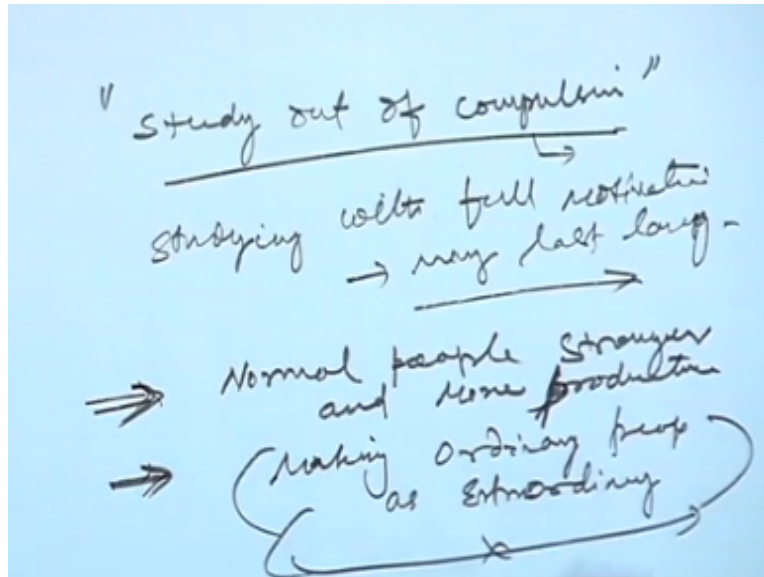 "Study out of compulsin"
studying with full motivatin
→ may last long -
Normal people stronger
and more productive
Making Ordinary peop
as Extraordinary